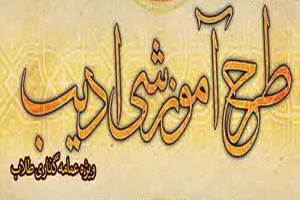 طرح آموزشی ادیب
ویژه عمامه گذاری طلاب